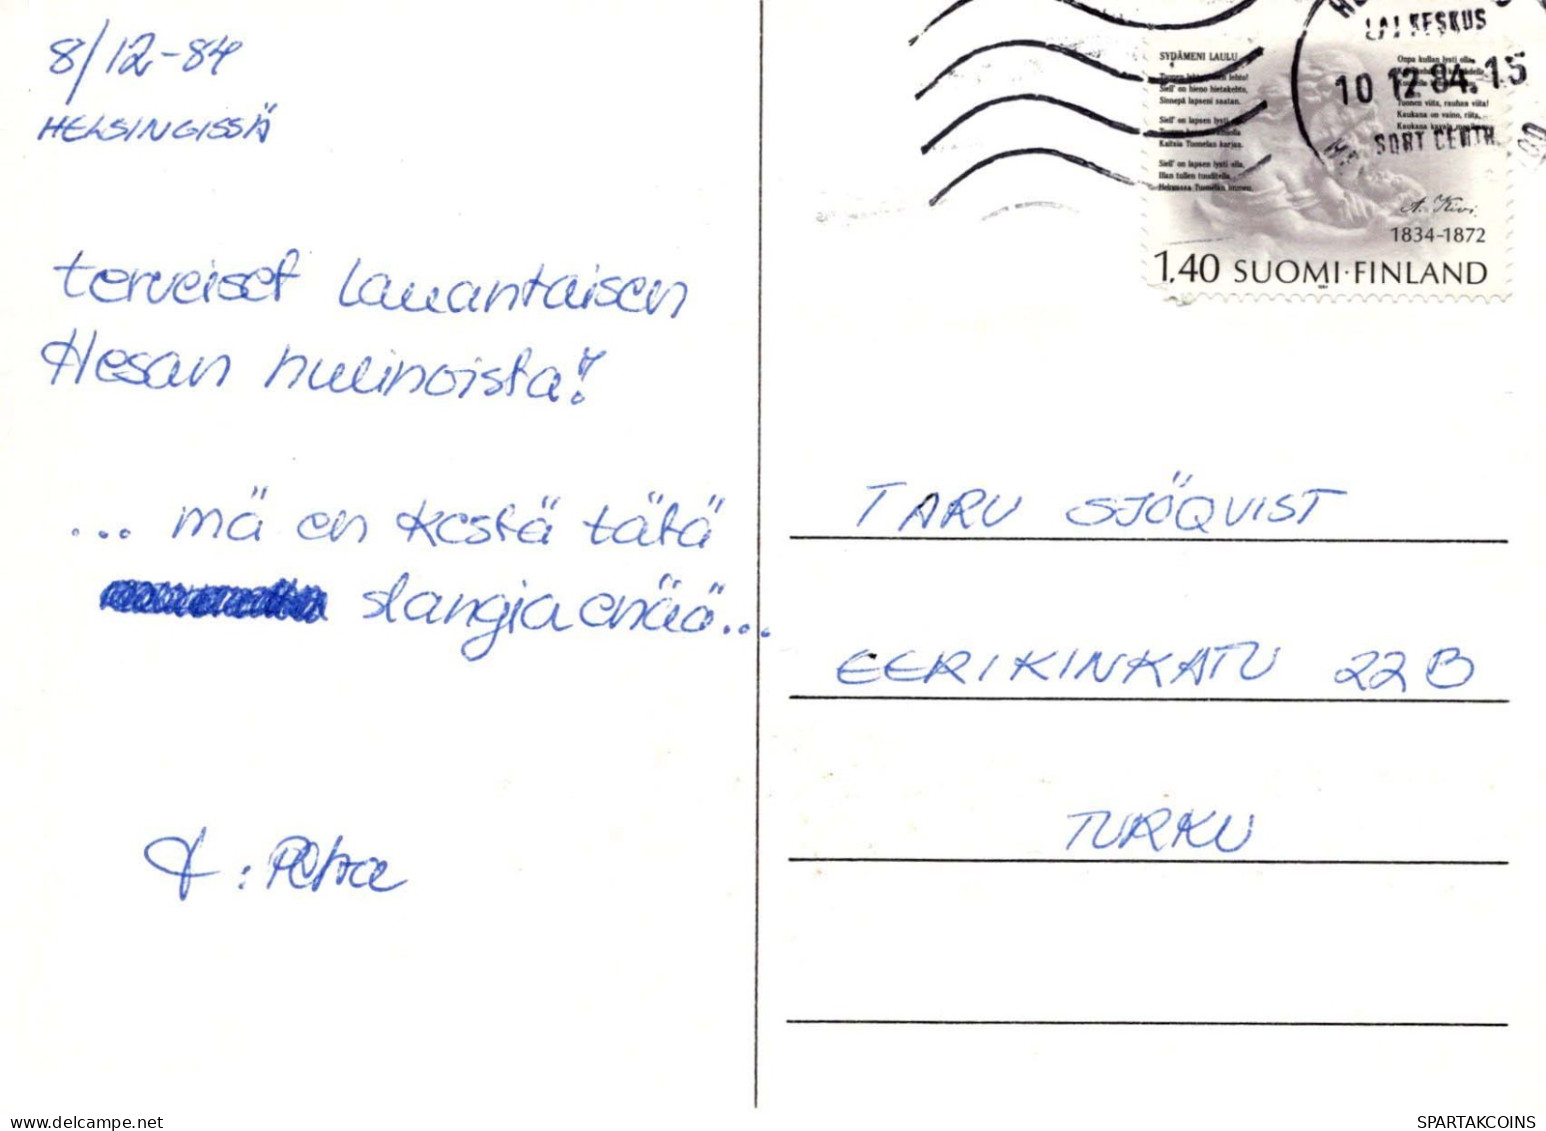 8/12-84
HELSINGISSÄ
terveiset lauantaisen
Hesan hulinoista!
... mä en kestä tätä
slangia enää...
: Petra
SYDÄMENI LAULU
Tuonen lehto, öinen lehto!
Siell' on hieno hietakehto,
Sinnepä lapseni saatan.
Siell' on lapsen lysti olla,
Kaitsia Tuonelan karjaa.
Siell' on lapsen lysti olla,
Illan tullen tuuditella
Helmassa Tuonelan immen.
Onpa kullan lysti olla,
Tuonen viita, rauhan viita!
Kaukana on vaino, riita,
Kaukana kavala maailma.
A. Kivi
1834-1872
1.40 SUOMI·FINLAND
LAJ KESKUS
10 12 84. 15
SORT CENTR.
TARU SJÖQVIST
EERIKINKATU 22 B
TURKU
delcampe.net
SPARTAKCOINS